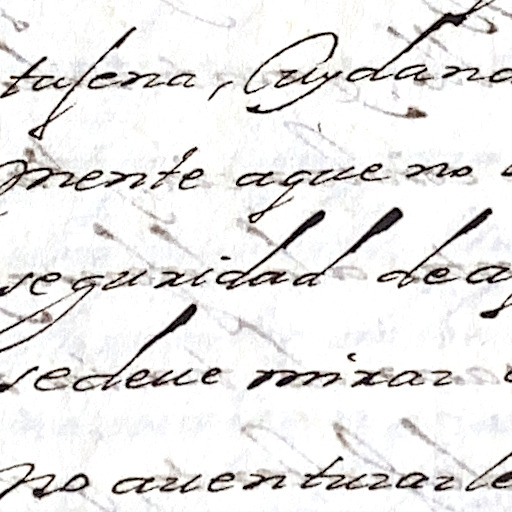 tasena, Cuydand
mente aque no
seguridad deaq
sedeue mirar
no auenturarle